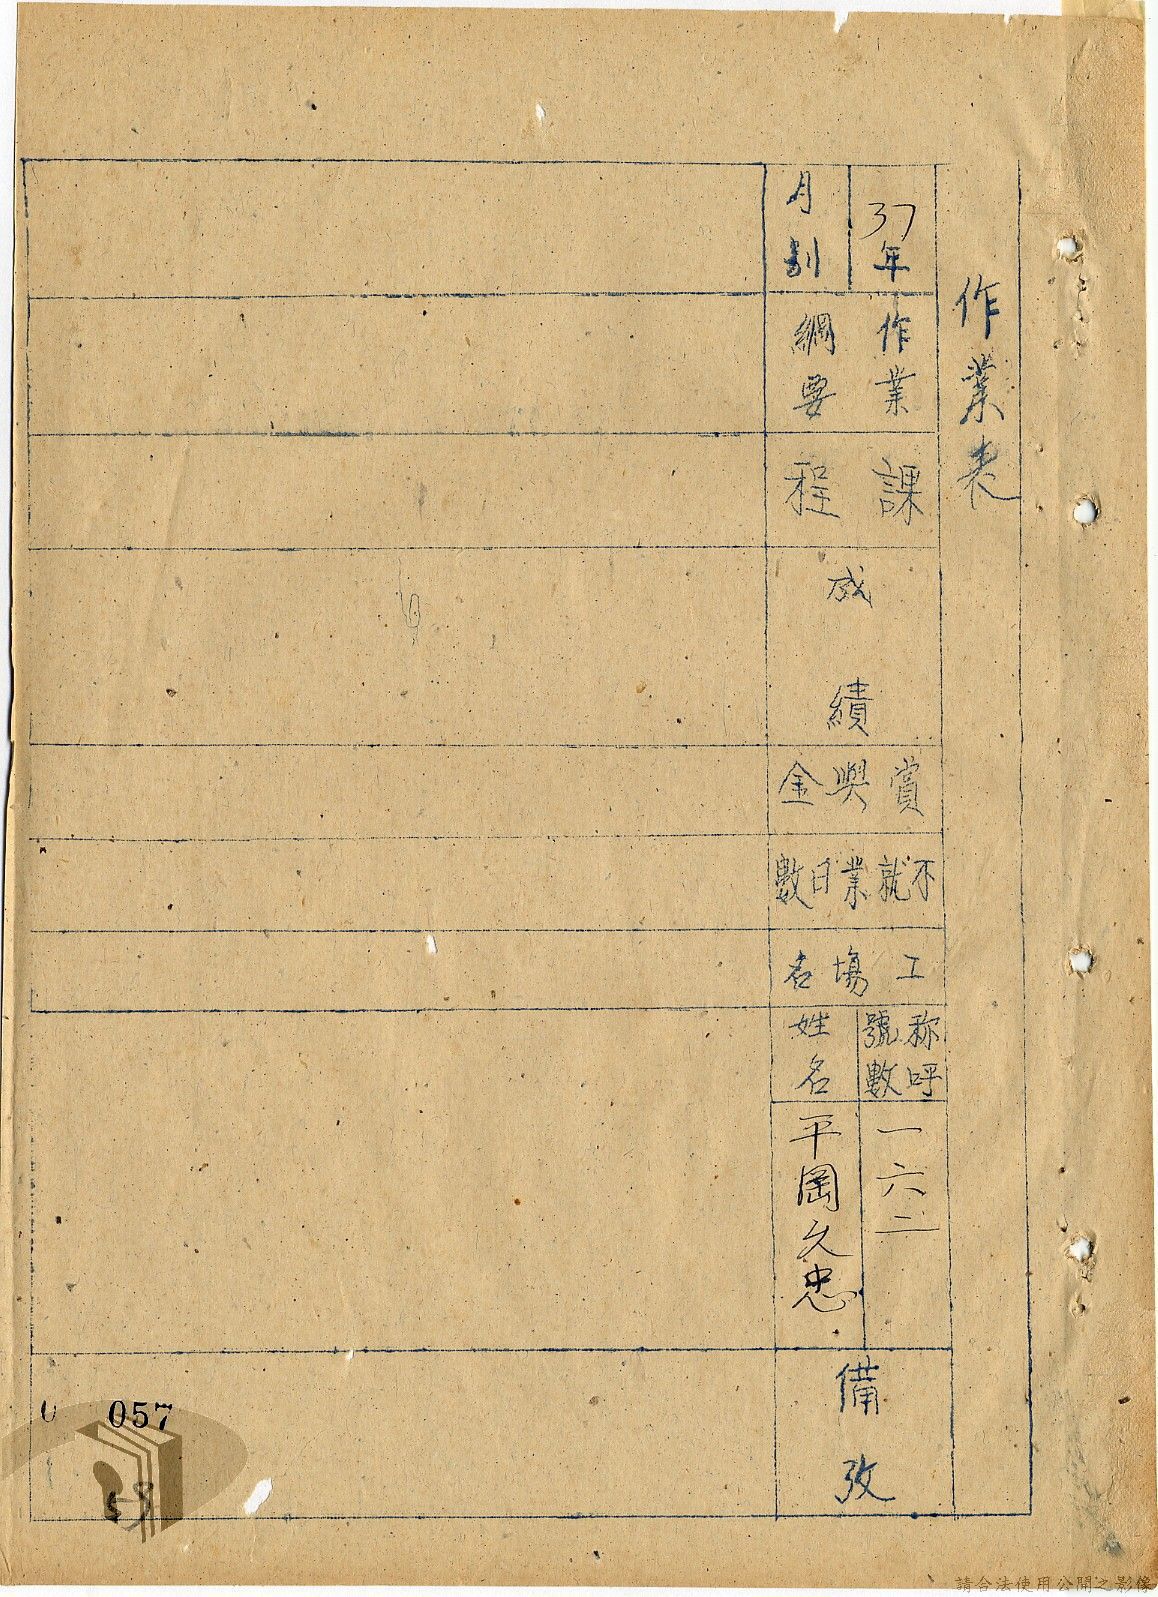 作業表
37年
月別
作業
綱要
課程
成績
賞與金
不就業日數
工場名
称呼
號數
一六二
姓名
平岡久忠
備攷
057
59
請合法使用公開之影像